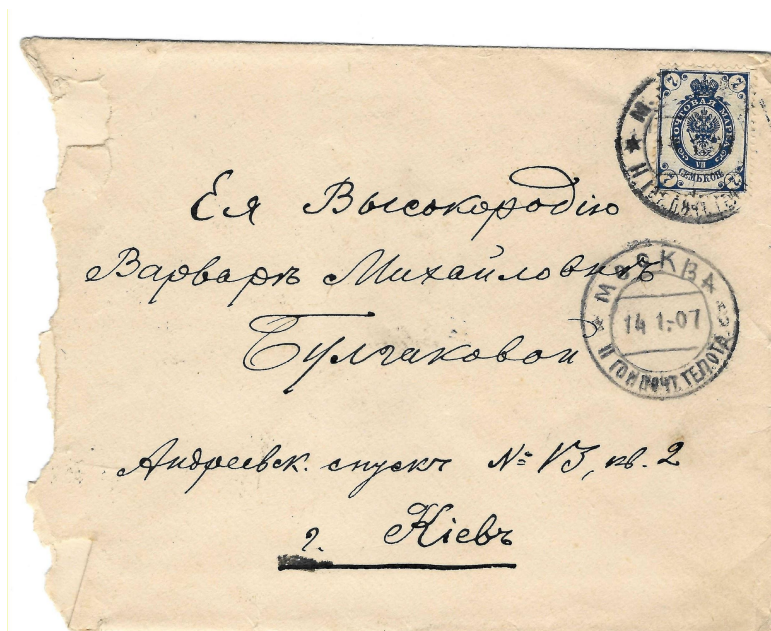 ПОЧТОВАЯ МАРКА
7 7
VII
СЕМЬ КОП.
7 7
Ея Высокородію
Варварѣ Михайловнѣ
Булгаковой
МОСКВА
14 1.07
Андреевск. спускъ № 13, кв. 2
г. Кіевъ